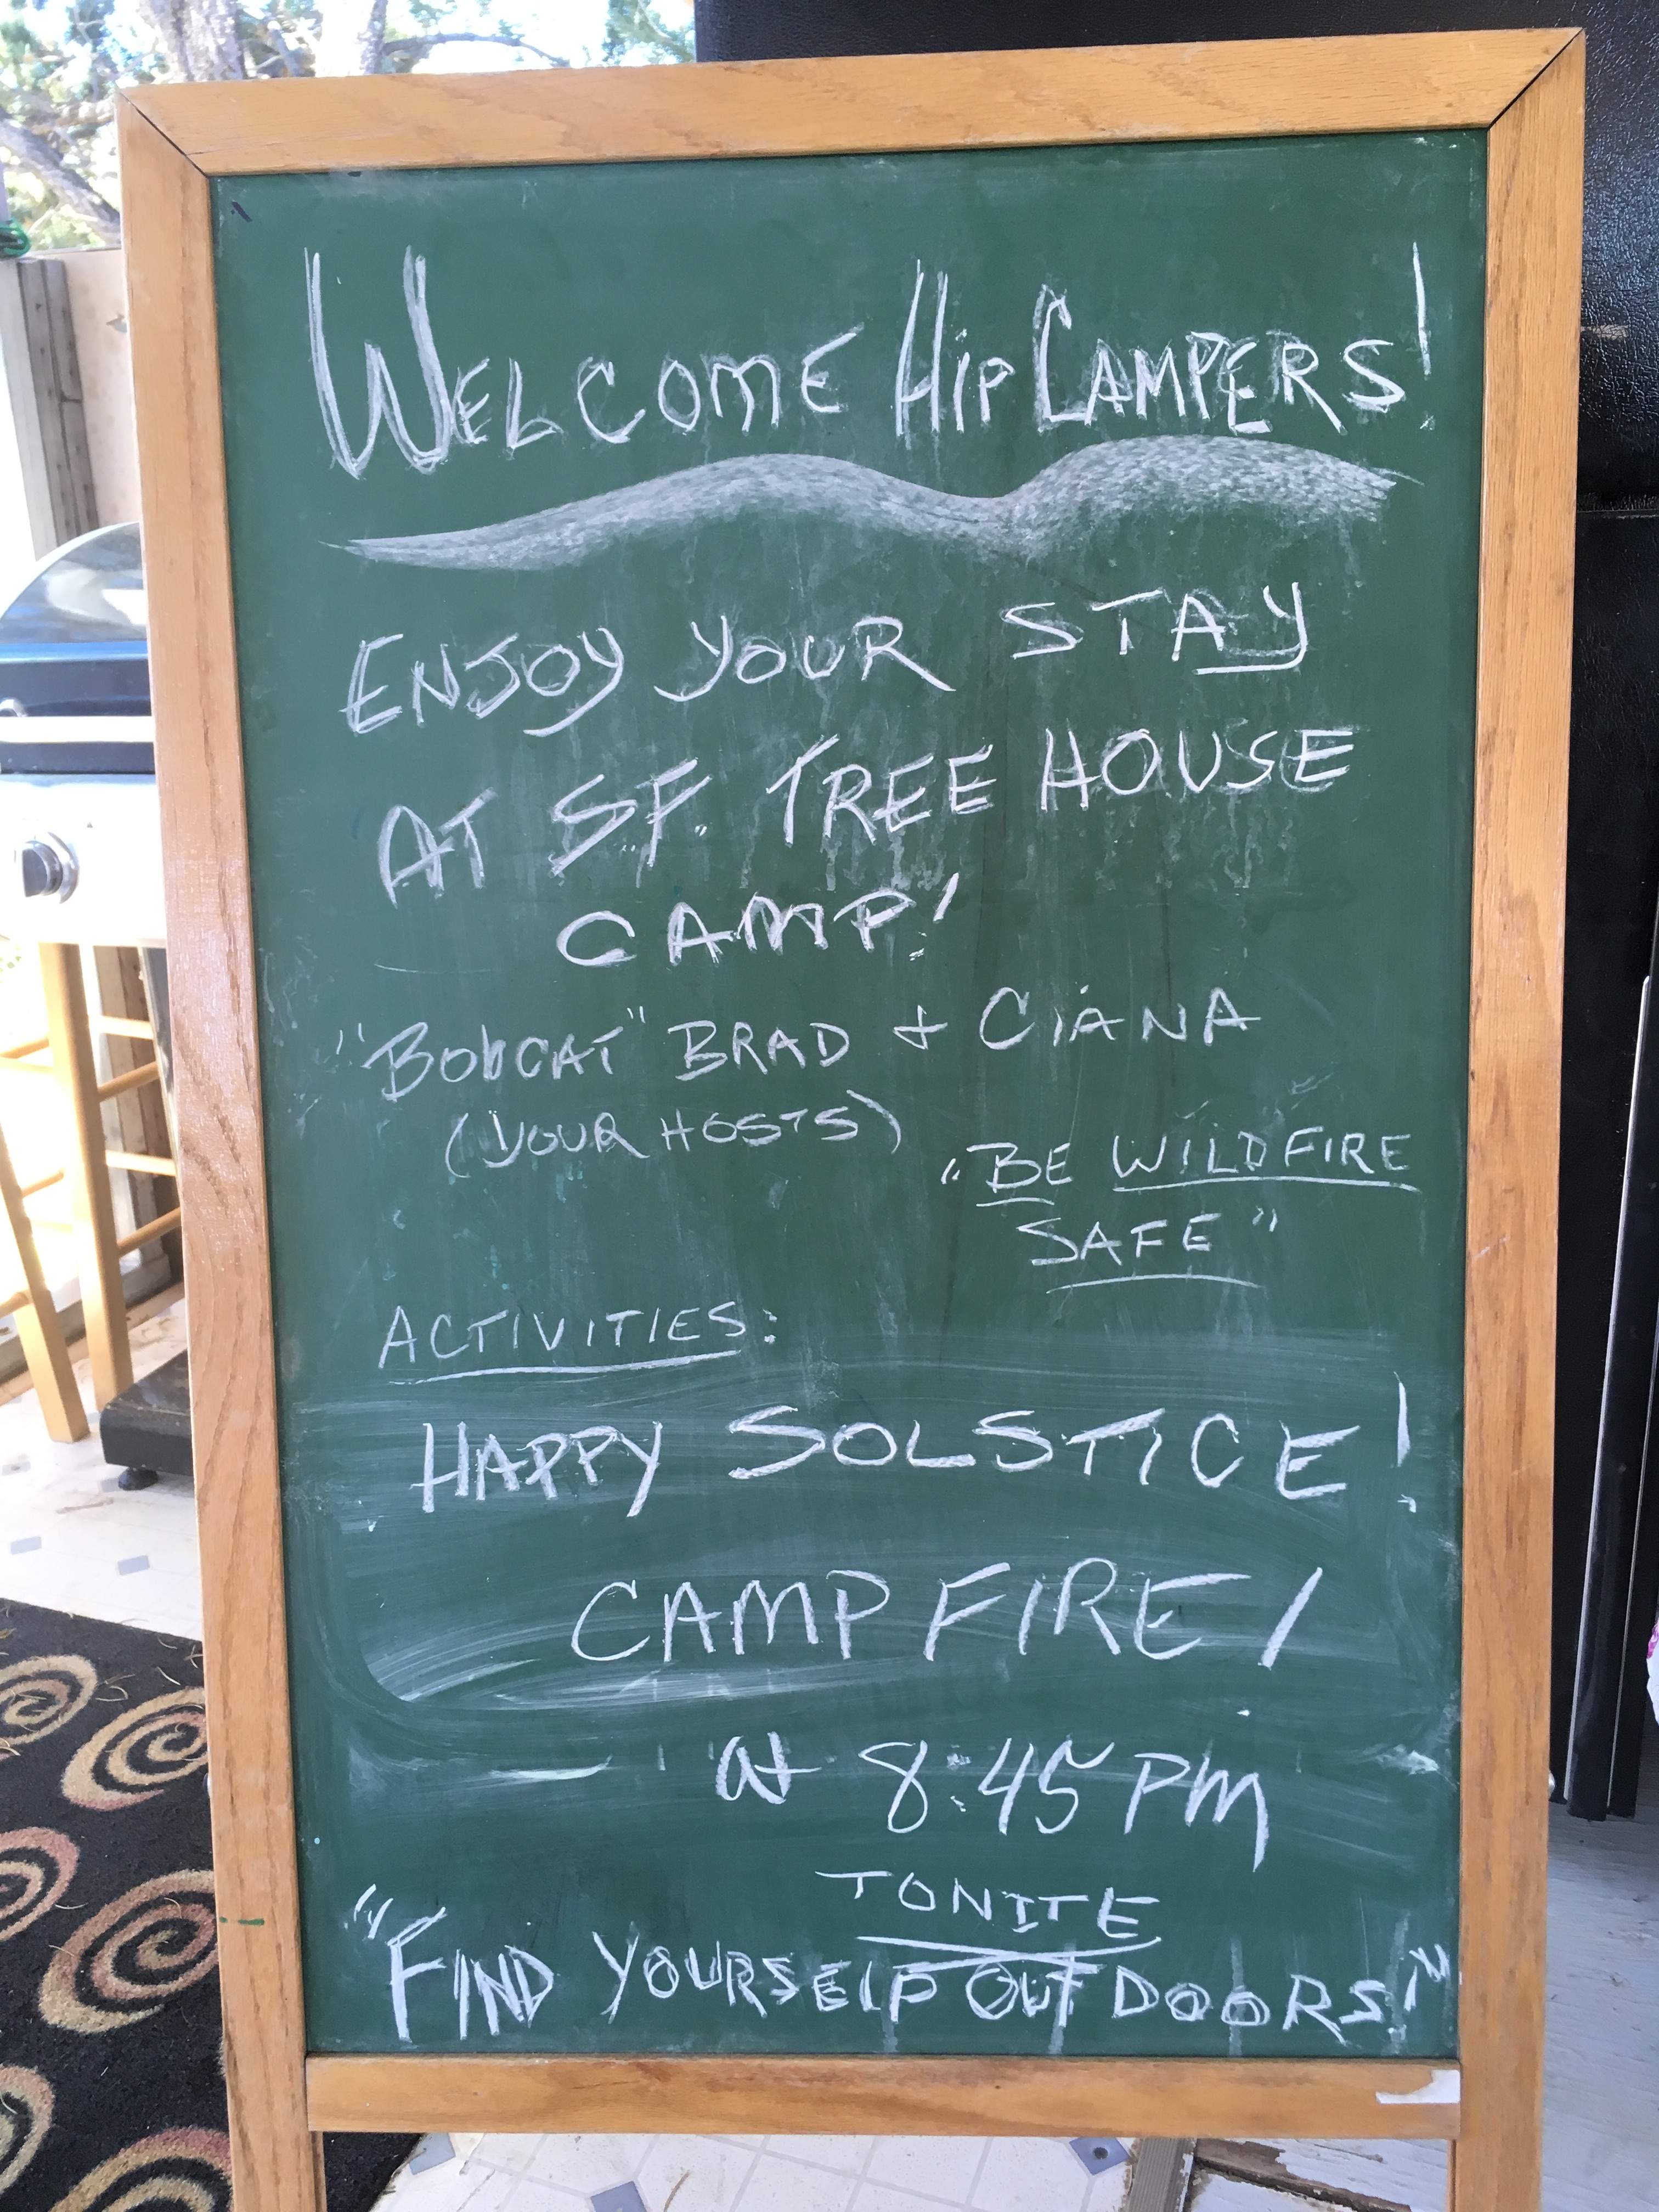 WELCOME HIP CAMPERS!
ENJOY YOUR STAY
AT SF. TREE HOUSE
CAMP!
"BObCAT" BRAD + CIANA
(YOUR HOSTS)
"BE WILDFIRE
SAFE"
ACTIVITIES:
HAPPY SOLSTICE!
CAMP FIRE!
at 8:45 PM
TONITE
"FIND YOURSELF OUTDOORS!"